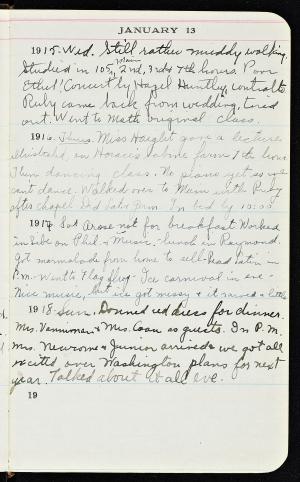 JANUARY 13
1915. Wed. Still rather muddy walking.
Studied in 105, Main 2nd, 3rd & 7th hours. Poor
Ethel! Concert by Hazel Huntley, contralto
Ruby came back from wedding, tired
out. Went to Math original class.
1916. Thurs. Miss Haight gave a lecture,
illustrated, on Horace's Sabine farm 7th hour
Then dancing class. No plans yet as we
can't dance. Walked over to Main with Ruby
after chapel. Did Latin Prom. In bed by 10:00
1917 Sat Arose not for breakfast Worked
in Libe on Phil. & Music. Lunch in Raymond.
Got marmalade from home to
P.M. Went to Flag Ice carnival in eve -
Nice music, but ice got messy & it rained a little
1918 Sun. Donned red dress for dinner.
Mrs. & Mrs. Coan as guests. In P.M.
Mrs. Newcome & Junior arrived & we got all
excited over Washington plans for next
year. Talked about it all eve.
19